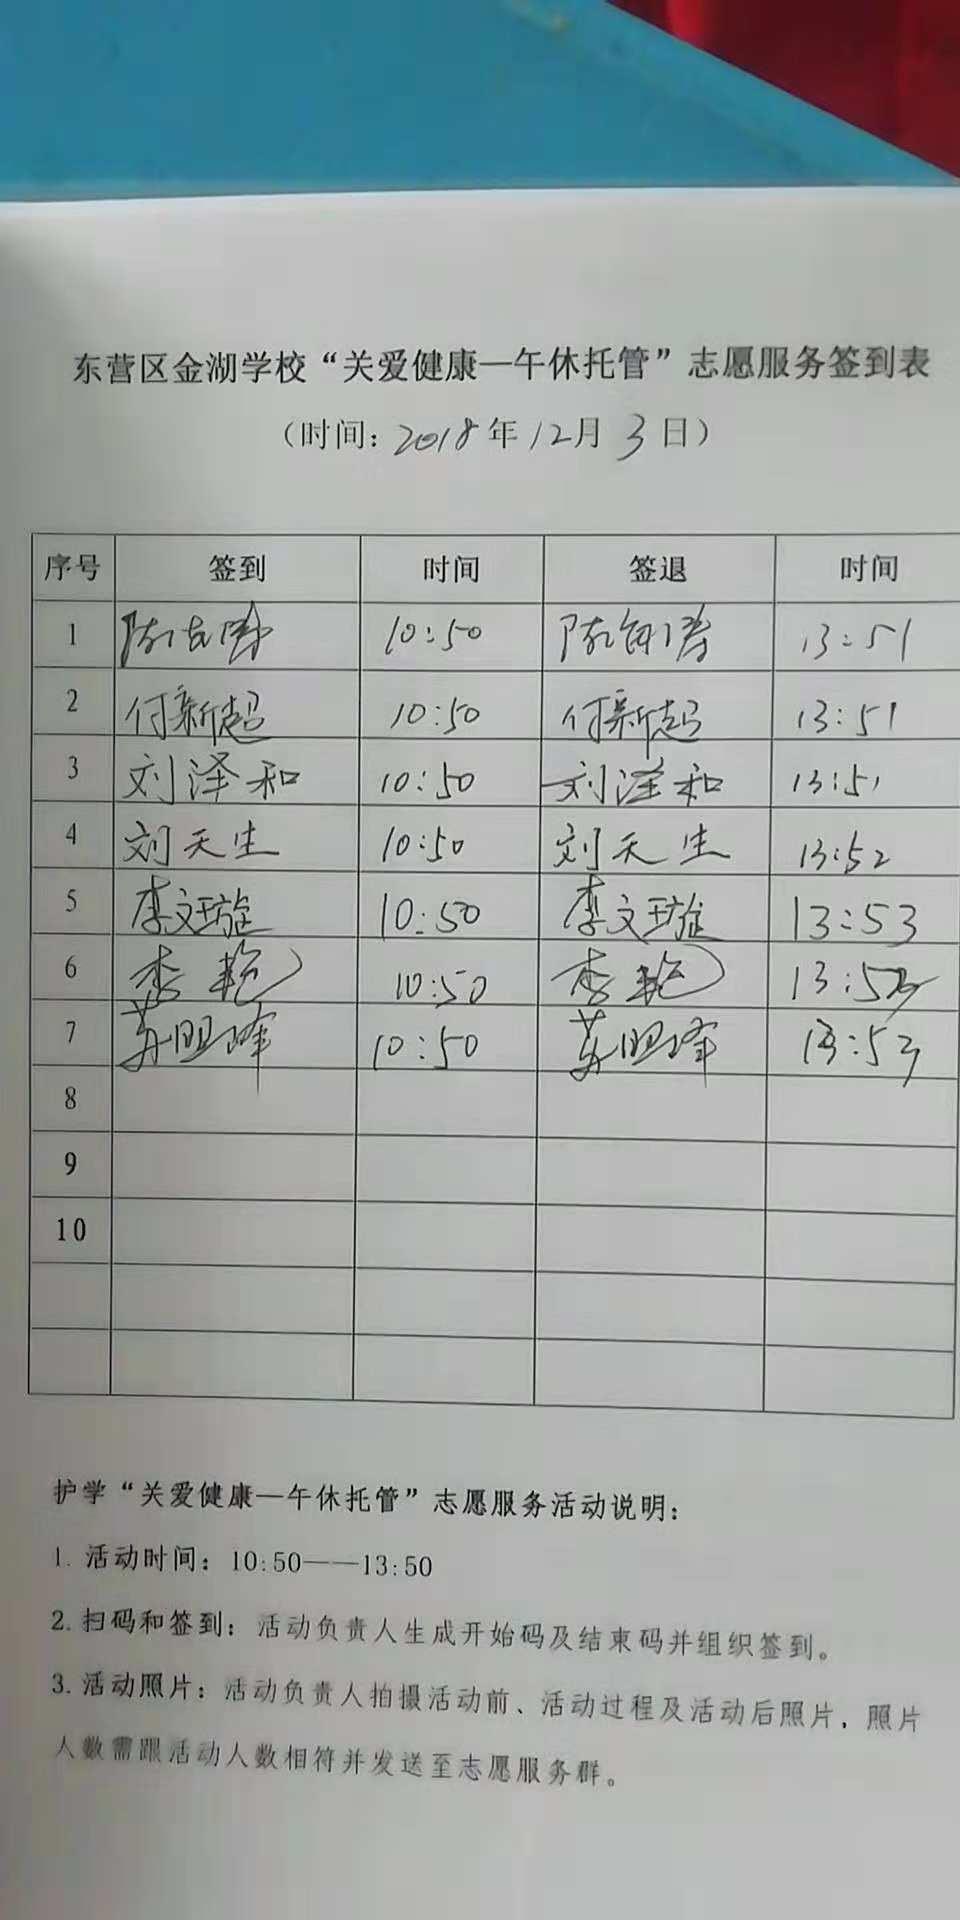 东营区金湖学校“关爱健康—午休托管”志愿服务签到表
（时间：2018年12月3日）
序号 签到 时间 签退 时间
1 10:50 13:51
2 付新超 10:50 付新超 13:51
3 刘泽和 10:50 刘泽和 13:51
4 刘天生 10:50 刘天生 13:52
5 李文璇 10:50 李文璇 13:53
6 李艳 10:50 李艳 13:53
7 苏明峰 10:50 苏明峰 13:53
8
9
10
护学“关爱健康—午休托管”志愿服务活动说明：
1. 活动时间：10:50——13:50
2. 扫码和签到：活动负责人生成开始码及结束码并组织签到。
3. 活动照片：活动负责人拍摄活动前、活动过程及活动后照片，照片
人数需跟活动人数相符并发送至志愿服务群。